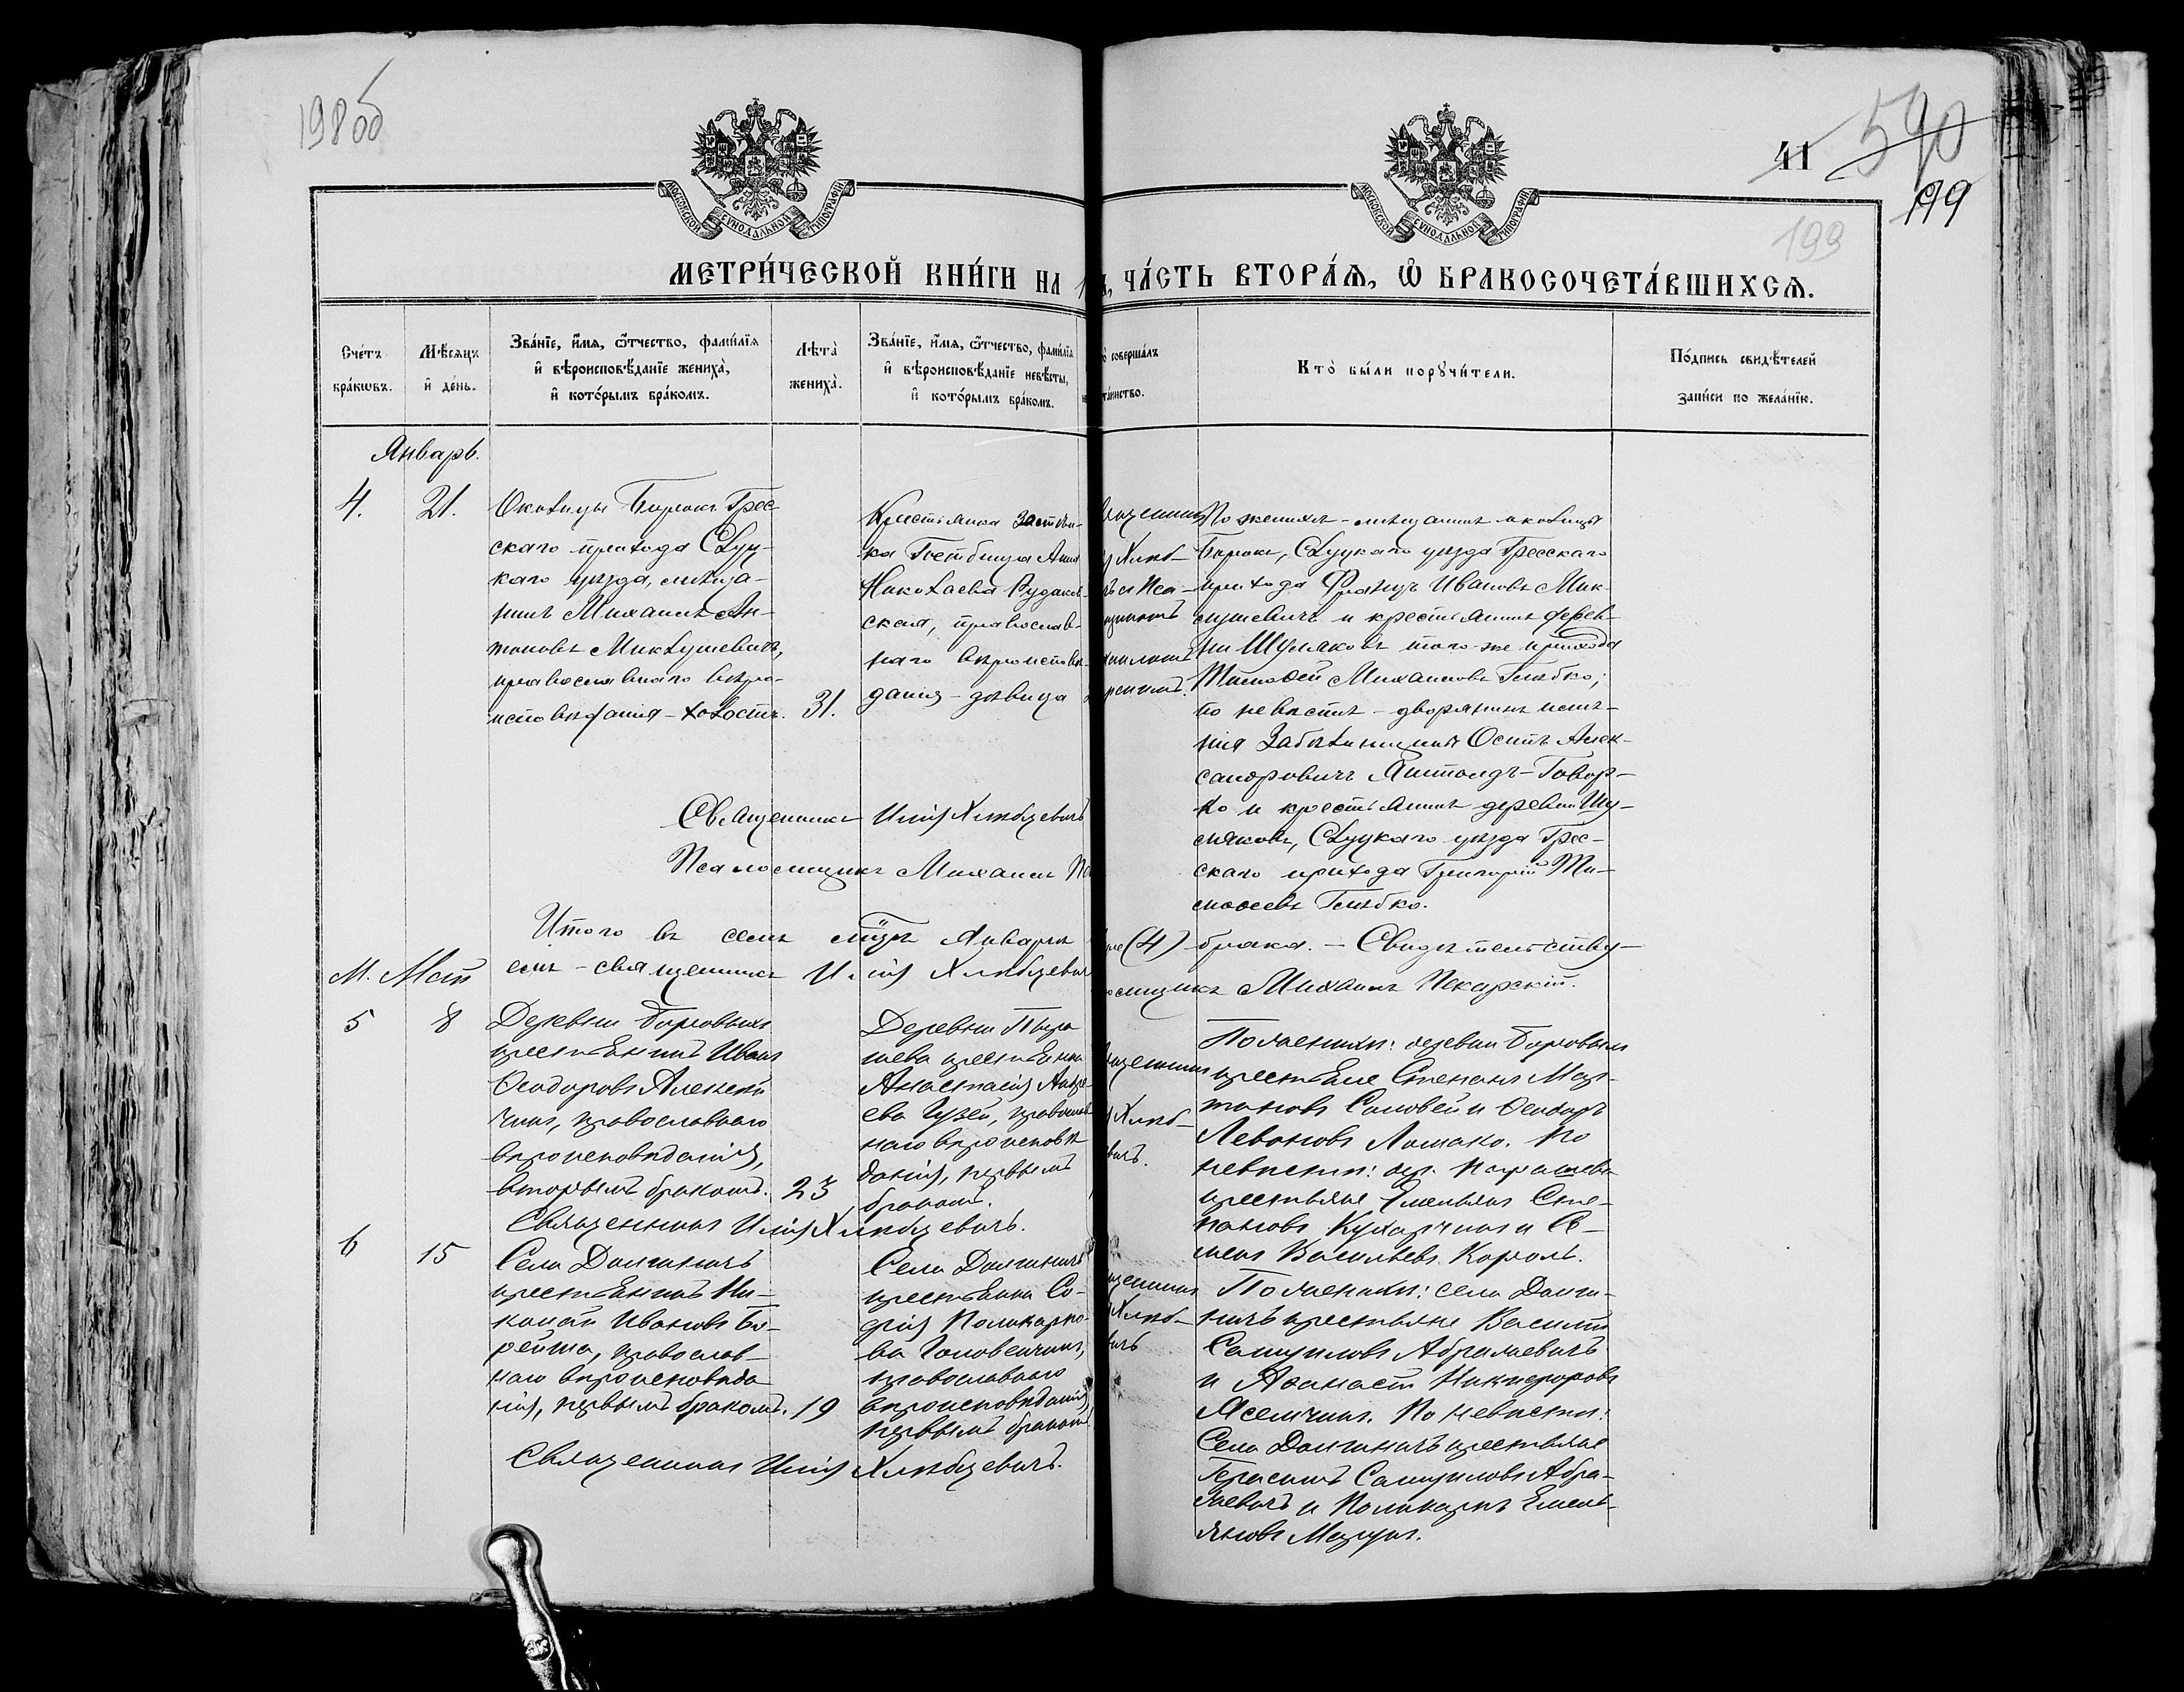 198об
41 590
199
199
МОСКОВСКОЙ СУНОДАЛЬНОЙ ТИПОГРАФІИ
МОСКОВСКОЙ СУНОДАЛЬНОЙ ТИПОГРАФІИ
МЕТРИ́ЧЕСКОЙ КНИ́ГИ НА 1
, ЧА́СТЬ ВТОРА́Ѧ, Ѡ БРАКОСОЧЕТА́ВШИХСѦ.
Сче́тъ
бра́кѡвъ.
Мѣ́сяцъ
и҆ де́нь.
Зва́нїе, и҆́мѧ, ѻ҆́тчество, фами́лїѧ
и҆ вѣроисповѣ́данїе жениха̀,
и҆ кото́рымъ бра́комъ.
Лѣта̀
жениха̀.
Зва́нїе, и҆́мѧ, ѻ҆́тчество, фами́лїѧ
и҆ вѣроисповѣ́данїе невѣ́сты,
и҆ кото́рымъ бра́комъ.
совершалъ
таинство.
Кто̀ бы́ли порꙋчи́тели.
По́дпись свидѣ́телей
за́писи по жела́нїю.
Январь.
4.
21.
Околицы Борокъ Грес-
скаго прихода Слуц-
каго уѣзда, мѣща-
нинъ Михаилъ Ан-
тоновъ Миклушевичъ,
православнаго вѣро-
исповѣданія – холостъ.
31.
Крестьянка Застѣн-
ка Анна
Николаева Рудаков-
ская, православ-
наго вѣроисповѣ-
данія – дѣвица
По женихѣ – мѣщанинъ околицы
Борокъ, Слуцкаго уѣзда Гресскаго
прихода Францъ Ивановъ Мик-
лушевичъ и крестьянинъ дерев-
ни Шуляковъ того-же прихода
Тимоѳей Михаиловъ Глѣбко;
по невѣстѣ – дворянинъ имѣ-
нія Осипъ Алек-
сандровичъ
ко и крестьянинъ деревни Шу-
ляковъ, Слуцкаго уѣзда Грес-
скаго прихода Григорій Ти-
моѳеевъ Глѣбко.
Священникъ Илія Хлѣбцевичъ
Псаломщикъ Михаилъ
Итого въ семъ мѣсяцѣ Январѣ
(4) брака. – Свидѣтельству-
емъ – священникъ Илія Хлѣбцевичъ
Михаилъ Пекарскій.
М. Май
5
8
Деревни Боровыхъ
крестьянинъ Иванъ
Ѳеодоровъ Алексей
чикъ, православнаго
вѣроисповѣданія,
вторымъ бракомъ.
23
Деревни Пора
шева крестьянка
Анастасія Андре-
ева Гузей, православ
наго вѣроисповѣ
данія, первымъ
бракомъ.
По женихѣ: деревни Боровыхъ
крестьяне Степанъ Мар-
тиновъ Соловей и Ѳеодоръ
Левоновъ Ломако. По
невѣстѣ: дер. Порашева
крестьяне Емельянъ Сте-
пановъ Кухарчикъ и Се-
менъ Васильевъ Король.
Священникъ Илія Хлѣбцевичъ.
6
15
Села Долгиничъ
крестьянинъ Ни-
колай Ивановъ Бо-
рейша, православ-
наго вѣроисповѣда
нія, первымъ бракомъ.
19
Села Долгиничъ
крестьянка Со-
фія Поликарпо-
ва Головенчикъ,
православнаго
вѣроисповѣданія,
первымъ бракомъ.
По женихѣ: села Долги-
ничъ крестьяне Василій
Самуиловъ Абрамевичъ
и Аѳанасій Никифоровъ
Асемчикъ. По невѣстѣ:
Села Долгиничъ крестьяне
Герасимъ Самуиловъ Абра-
мевичъ и Поликарпъ Емель-
яновъ Мазуръ.
Священникъ Илія Хлѣбцевичъ.